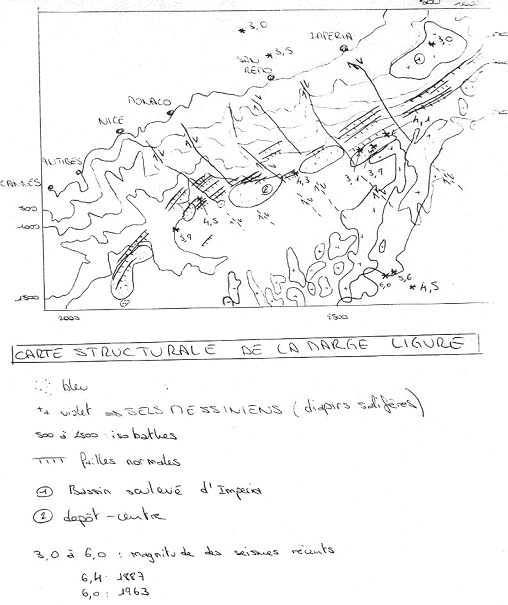 500 1000
3,0
IMPERIA
3,0
3,5
SAN
REMO
MONACO
NICE
ANTIBES
CANNES
4,1
3,9
4,3
4,5
3,9
500
1000
1500
5,6
6,0
4,5
2000
2500
CARTE STRUCTURALE DE LA MARGE LIGURE
bleu
++ violet => SELS MESSINIENS (diapirs salifères)
500 à 2500 : isobathes
failles normales
① Bassin soulevé d'Imperia
② depôt-centre
3,0 à 6,0 : magnitude des seismes récents
6,4 : 1887
6,0 : 1963